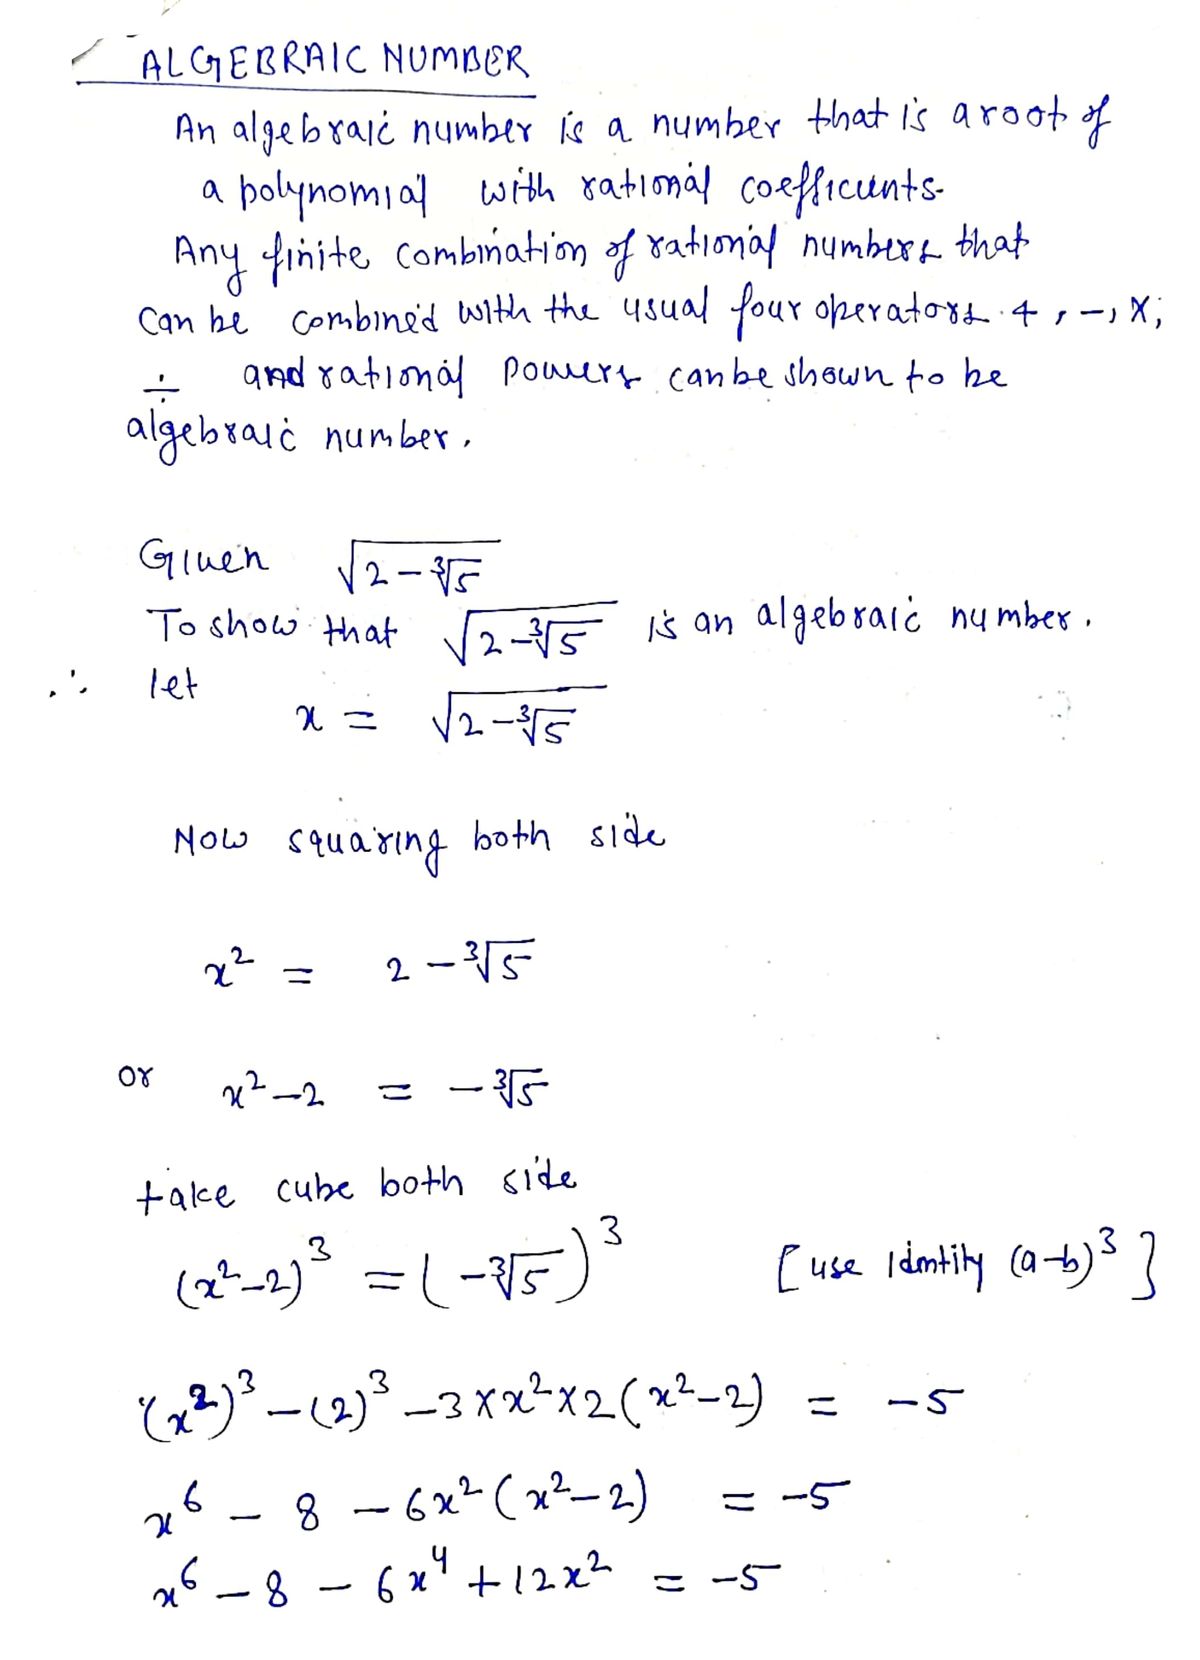 ALGEBRAIC NUMBER
An algebraic number is a number that is a root of
a polynomial with rational coefficients.
Any finite combination of rational numbers that
can be combined with the usual four operators + , -, ×,
÷ and rational powers can be shown to be
algebraic number.
Given √(2-∛5)
To show that √(2-∛5) is an algebraic number.
∴ let
x = √(2-∛5)
Now squaring both side
x² = 2 - ∛5
or x² - 2 = - ∛5
take cube both side
(x²-2)³ = (-∛5)³ [use Identity (a-b)³]
(x²)³ - (2)³ - 3×x²×2(x²-2) = -5
x⁶ - 8 - 6x²(x²-2) = -5
x⁶ - 8 - 6x⁴ + 12x² = -5